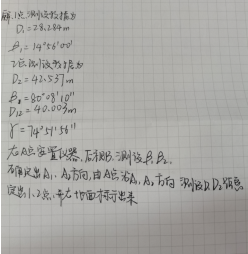 1点测设数据为
D₁=28.284m
β₁=14°56'00"
2点测设数据为
D₂=42.537m
β₂=80°08'10"
D₁₂=40.003m
γ=74°51'56"
在A点安置仪器,后视B,测设β₁β₂
A₁、A₂方向,由A点沿A₁、A₂方向测设D₁D₂
定出1、2点,并在地面标示出来